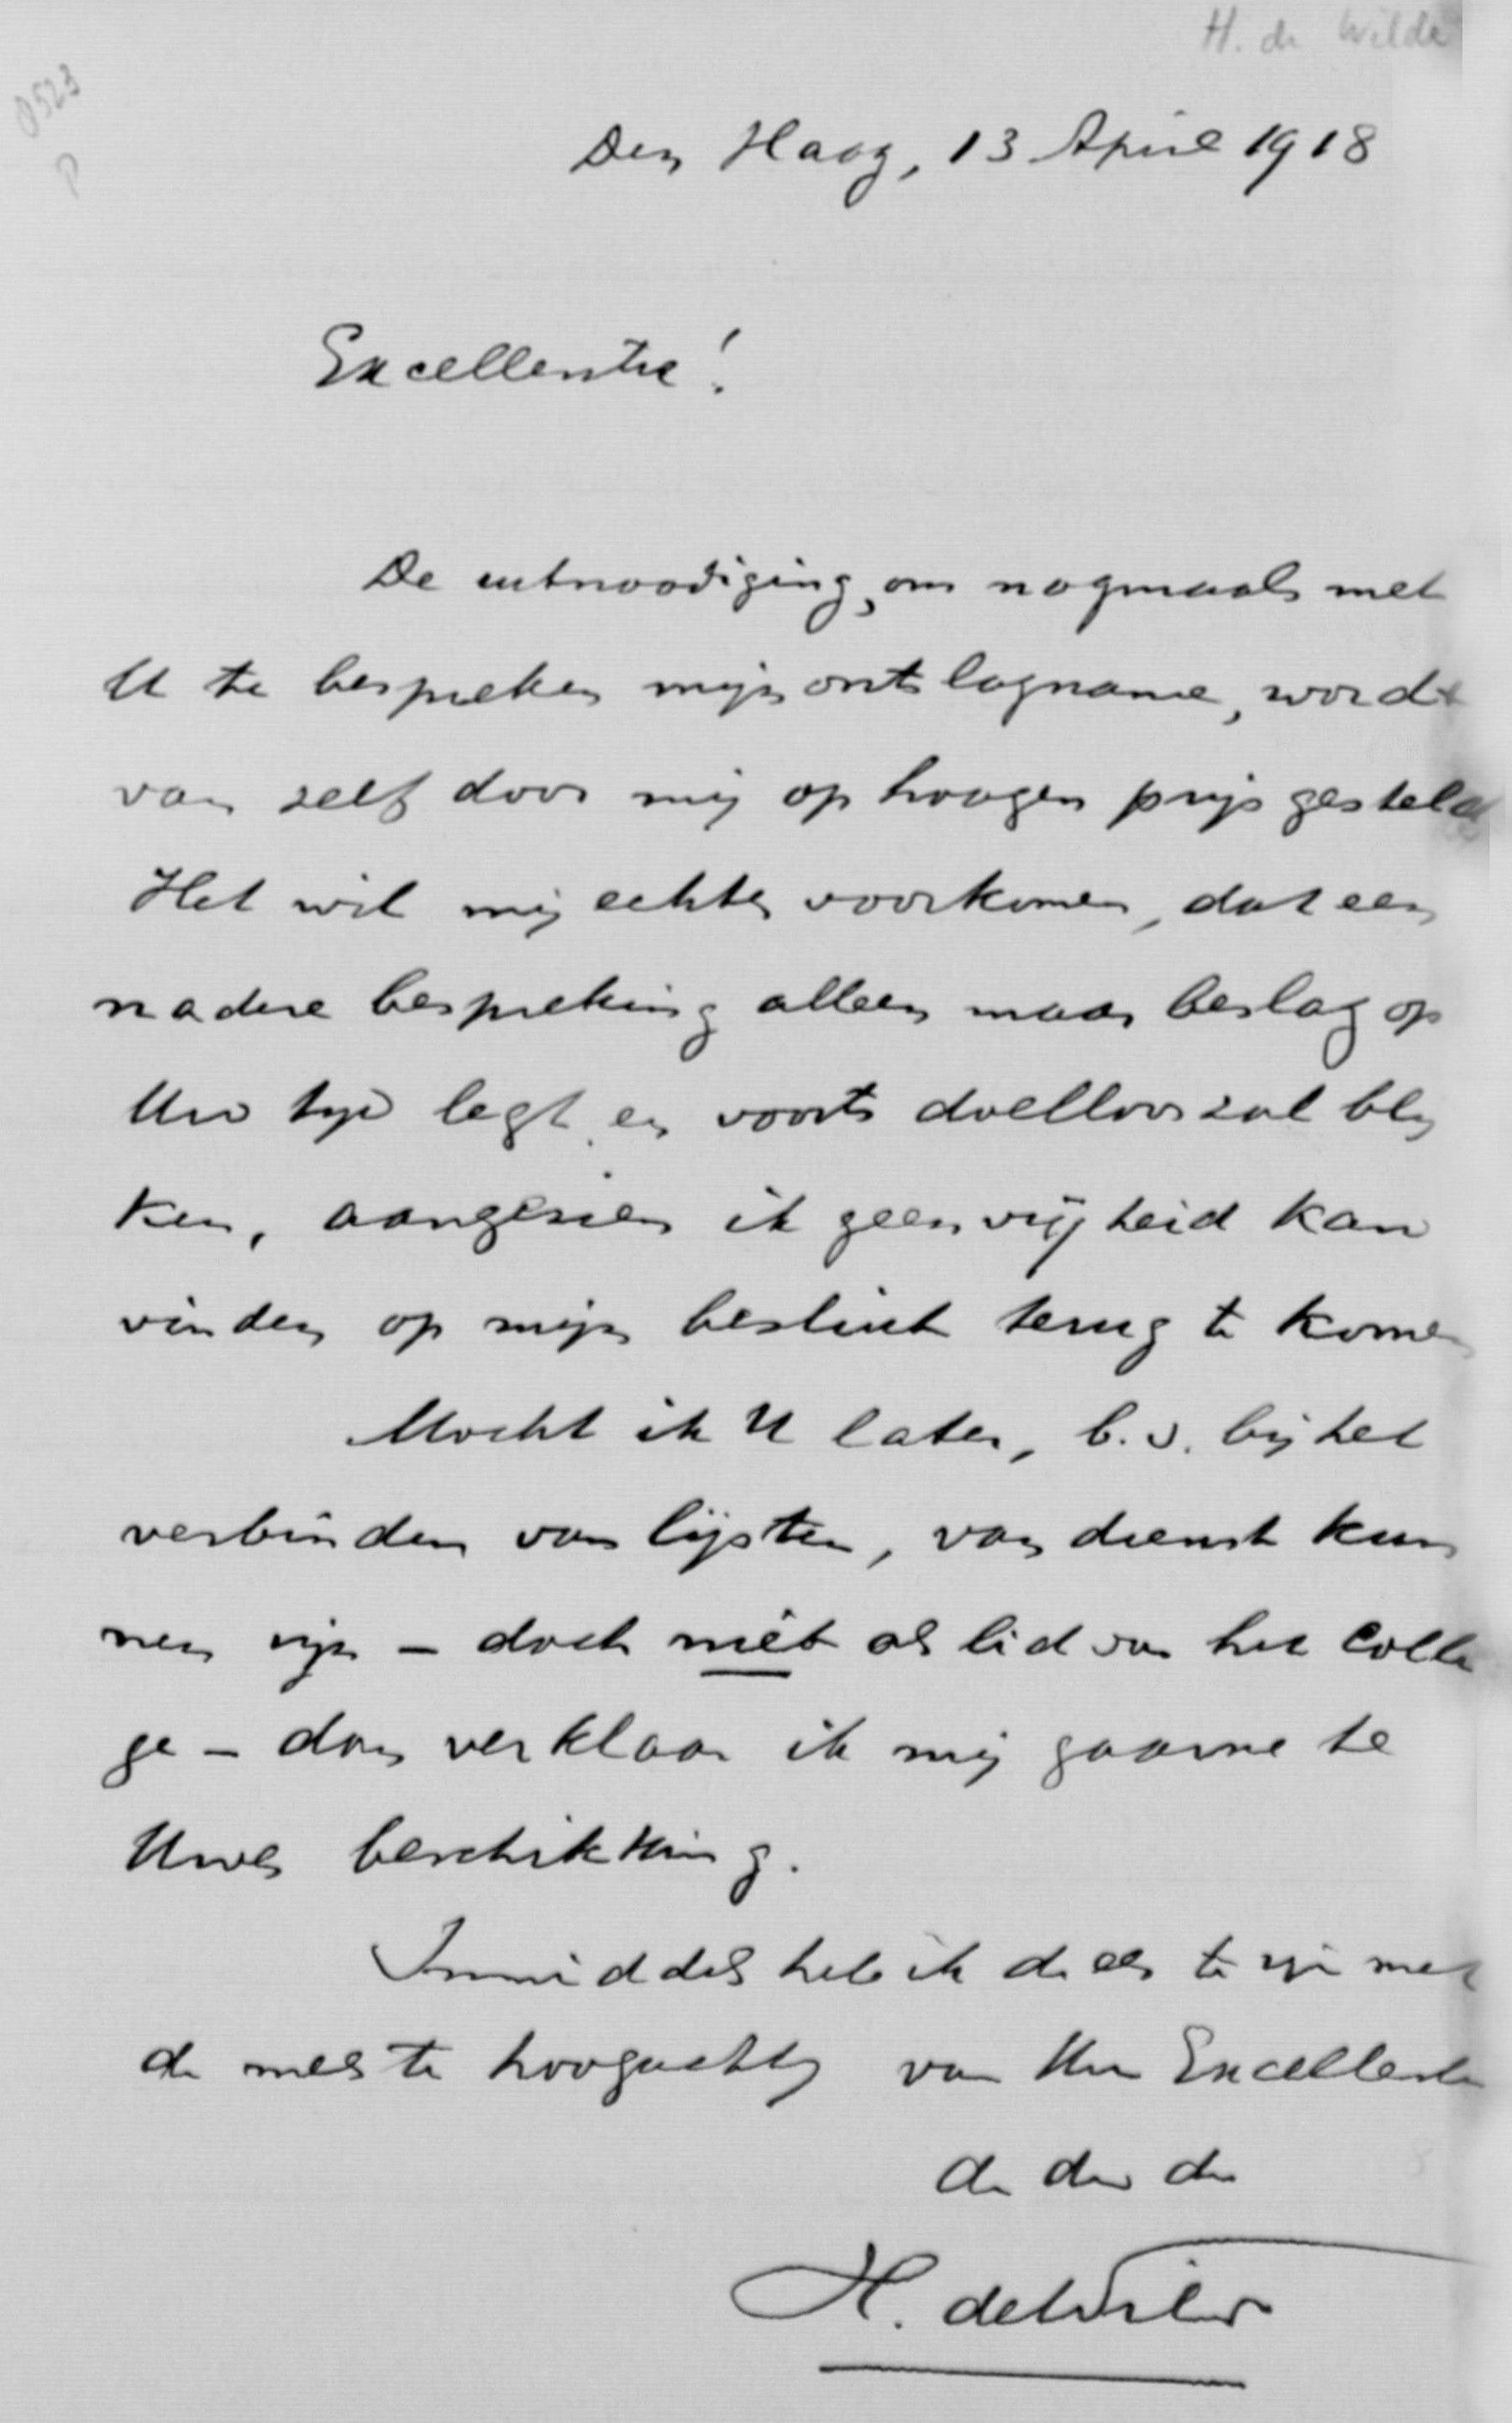 H. de Wilde
0523
P
Den Haag, 13 April 1918
Excellentie!
De uitnoodiging, om nogmaals met
U te bespreken mijn ontslagname, wordt
van zelf door mij op hoogen prijs gesteld
Het wil mij echter voorkomen, dat een
nadere bespreking alleen maar beslag op
Uw tijd legt en voorts doelloos zal blij
ken, aangezien ik geen vrijheid kan
vinden op mijn besluit terug te komen
Mocht ik U later, b.v. bij het
verbinden van lijsten, van dienst kun
nen zijn – doch niet als lid van het Colle
ge – dan verklaar ik mij gaarne te
Uwer beschikking.
Inmiddels heb ik de eer te zijn met
de meeste hoogachting van Uw Excellentie
de dw dr
H. de Wilde